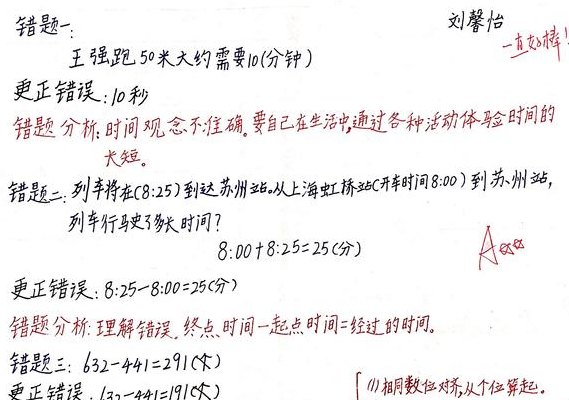 错题一:
刘馨怡
一直好棒!
王强跑50米大约需要10(分钟)
更正错误:10秒
错题分析:时间观念不准确。要自己在生活中,通过各种活动体验时间的
长短。
错题二:列车将在(8:25)到达苏州站。从上海虹桥站(开车时间8:00)到苏州站,
列车行驶了多长时间?
8:00+8:25=25(分)
A☆☆
更正错误:8:25-8:00=25(分)
错题分析:理解错误。终点时间-起点时间=经过的时间。
错题三:632-441=291(本)
更正错误:632-441=191(本)
(1)相同数位对齐,从个位算起。